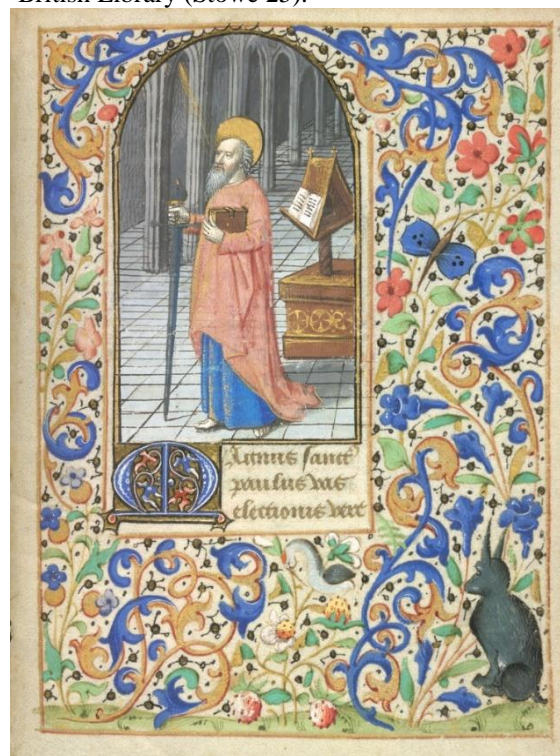 British Library (Stowe 25).
Magnus sanct
paulus vas
electionis vere